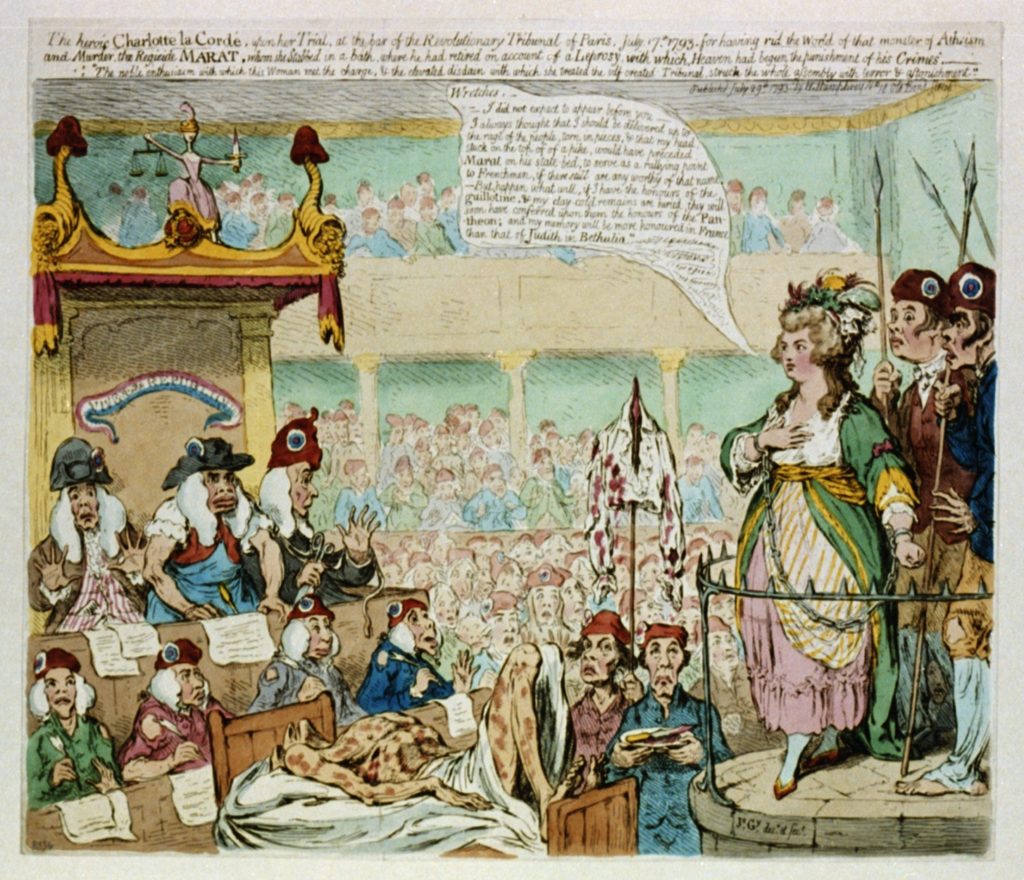 The heroic Charlotte la Cordé, upon her Trial, at the bar of the Revolutionary Tribunal of Paris, July 17th 1793. for having rid the World of that monster of Atheism
and Murder, the Regicide MARAT, whom she Stabbed in a bath, where he had retired on account of a Leprosy, with which, Heaven had begun the punishment of his Crimes.
"The noble enthusiasm with which this Woman met the charge, & the elevated disdain with which she treated the self created Tribunal, struck the whole assembly with terror & astonishment."
Publish'd July 29th 1793. by H. Humphrey No 18 Old Bond Street
Wretches,
I did not expect to appear before you
I always thought that I should be delivered up to
the rage of the people, torn in pieces, & that my head,
stuck on the top of a pike, would have preceded
Marat on his state-bed, to serve as a rallying point
to Frenchmen, if there still are any worthy of that name
But, happen what will, if I have the honours of the
guillotine, & my clay-cold remains are buried, they will
soon have conferred upon them the honours of the Pan-
theon; and my memory will be more honoured in France
than that of Judith in Bethulia.
Js Gy desn et fect
8336